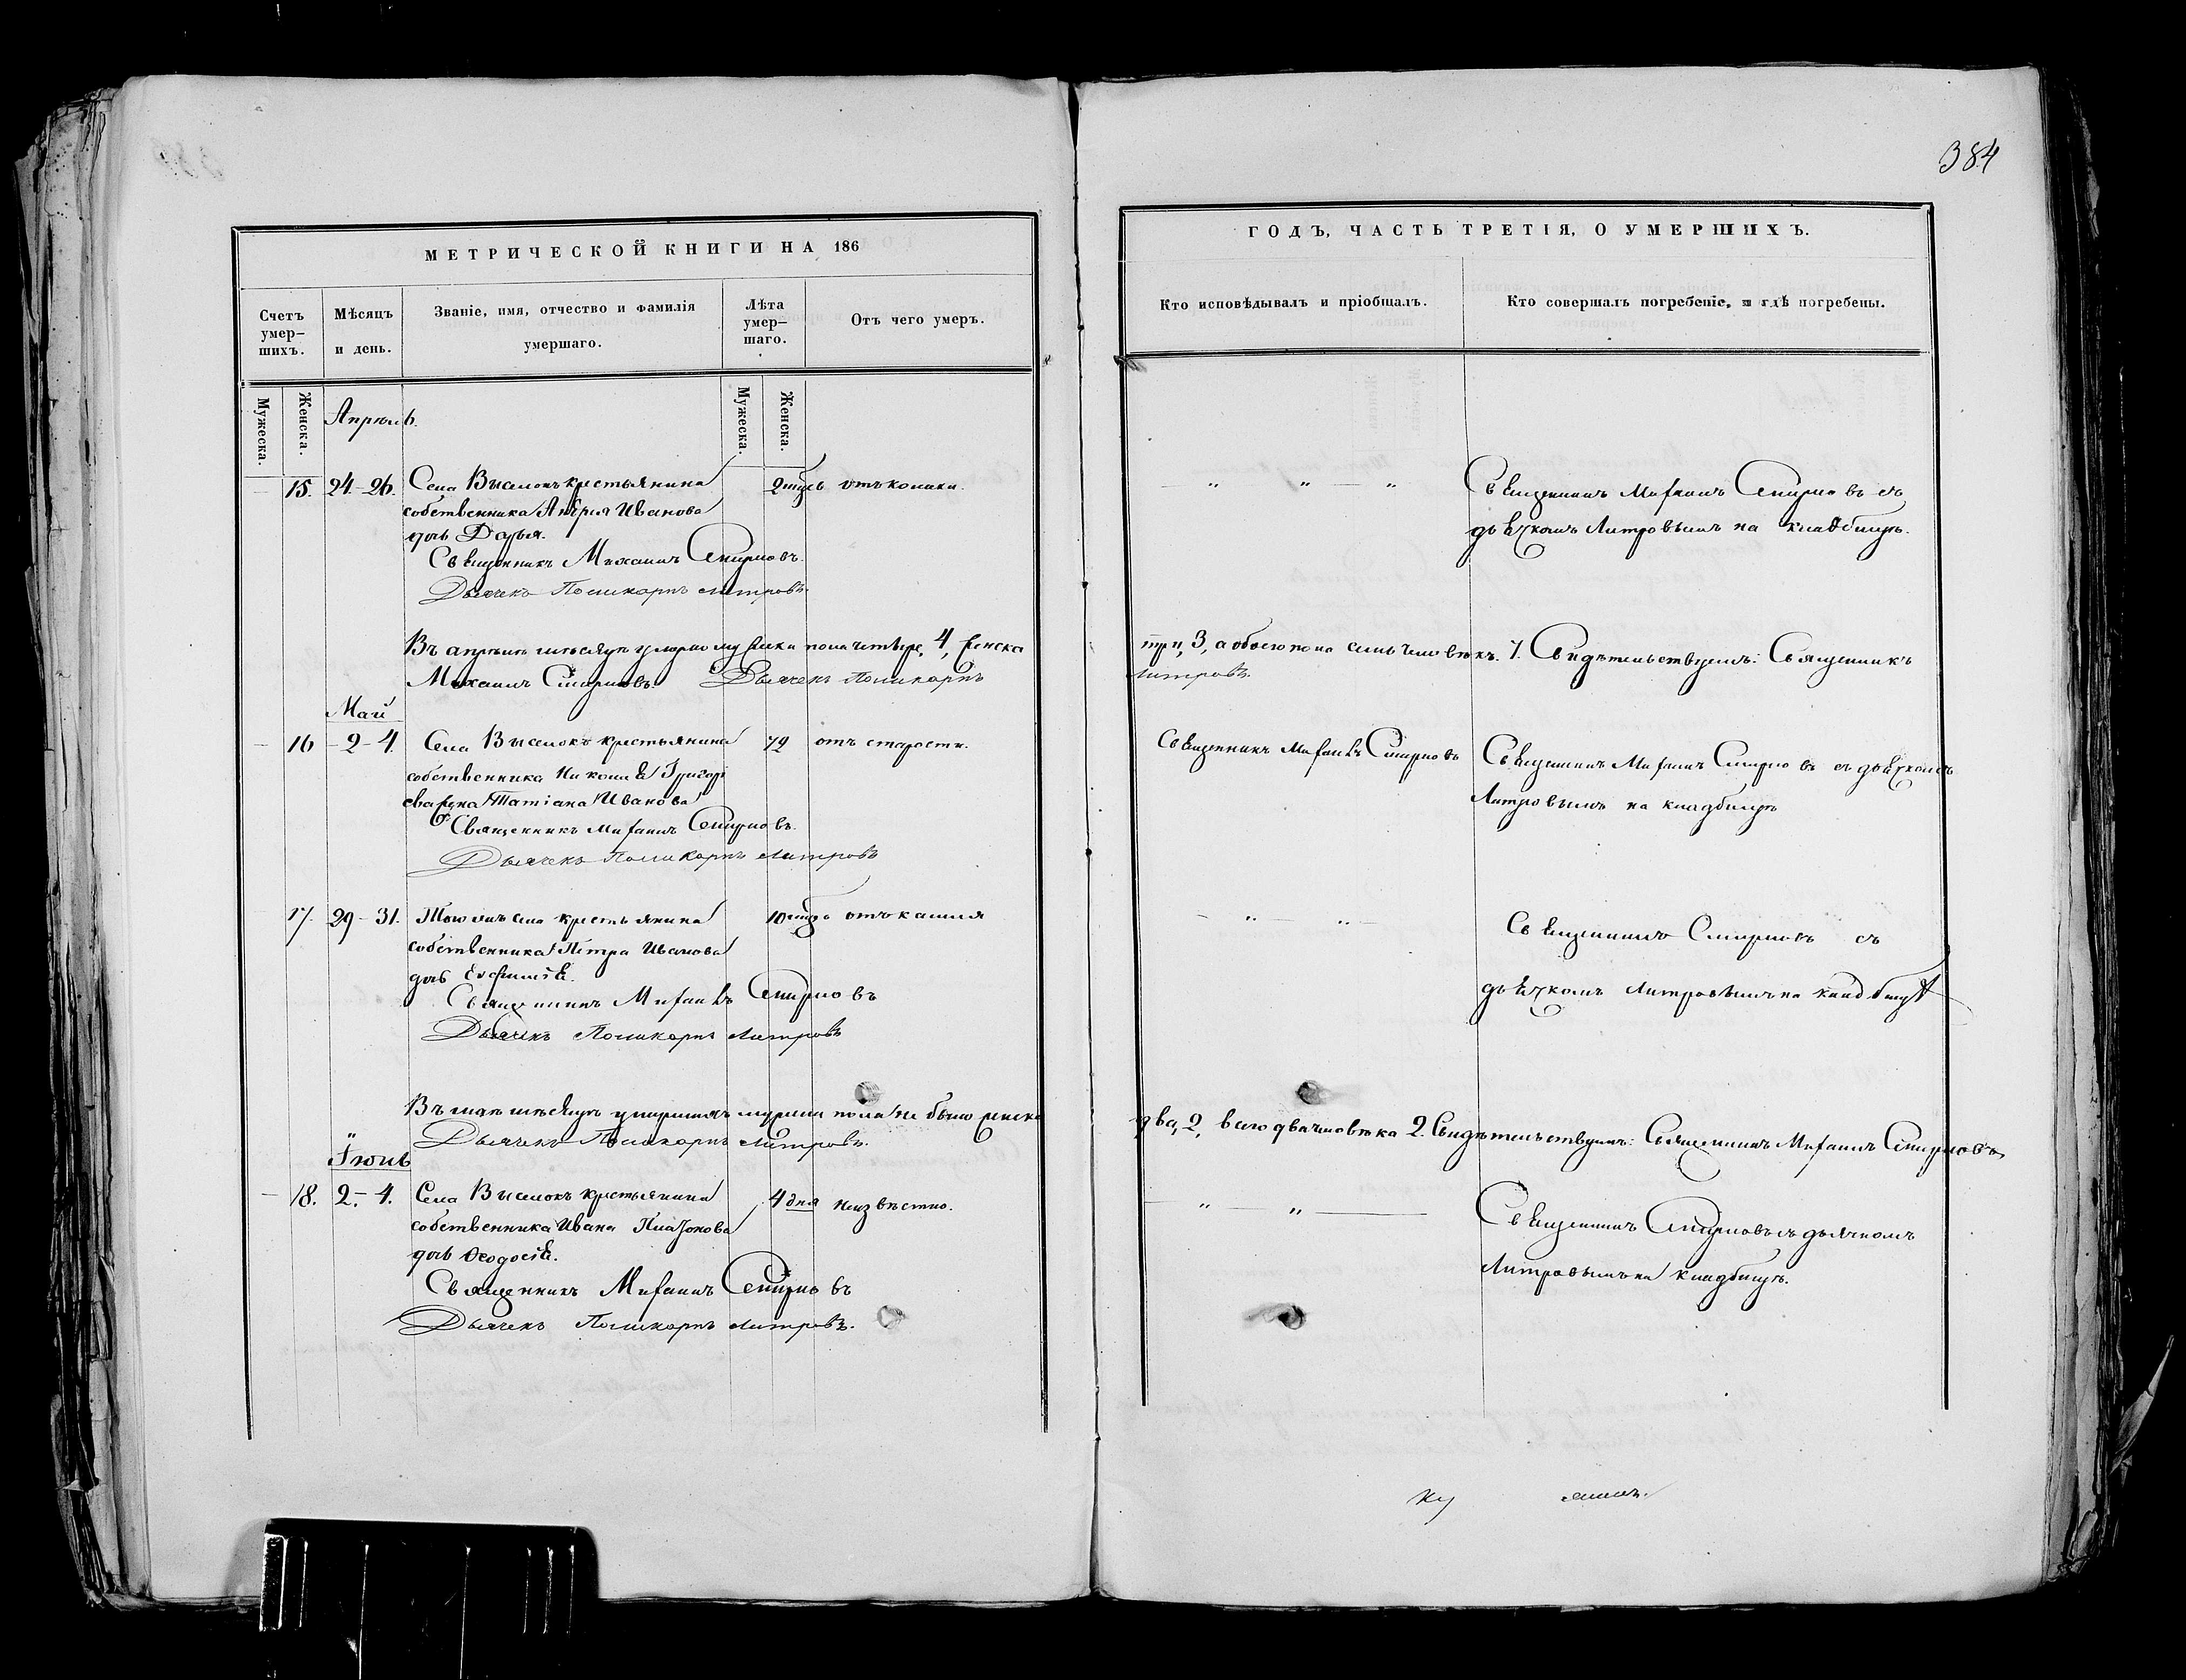 384
МЕТРИЧЕСКОЙ КНИГИ НА 186
Счетъ умер-шихъ.
Мѣсяцъ и день.
Званіе, имя, отчество и фамилія умершаго.
Лѣта умер-шаго.
Отъ чего умеръ.
Мужеска.
Женска.
Мужеска.
Женска.
Апрѣль.
15. 24-26. Села Выселокъ крестьянина
собственника Иванова
дочь Дарья.
Священникъ Михаилъ Смирновъ.
Дьячекъ Поликарпъ Литровъ.
Въ апрѣлѣ мѣсяцѣ умерло мужеска пола четыре, 4, женска
Михаилъ Смирновъ. Дьячекъ Поликарпъ
Май
16 - 2-4. Села Выселокъ крестьянина 72 отъ старости.
собственника Григорь
ева жена Татіана Иванова
Священникъ Михаилъ Смирновъ.
Дьячекъ Поликарпъ Литровъ
17. 29-31. Тогожъ села крестьянина отъ кашля
собственника Петра Иванова
дочь Евфимія.
Священникъ Михаилъ Смирновъ
Дьячекъ Поликарпъ Литровъ
Въ маѣ мѣсяцѣ умершихъ мужеска пола не было женска
Дьячекъ Поликарпъ Литровъ.
Іюнь
18. 2.-4. Села Выселокъ крестьянина 4 дня неизвѣстно.
собственника Ивана Платонова
дочь Ѳеодосія.
Священникъ Михаилъ Смирновъ
Дьячекъ Поликарпъ Литровъ.
ГОДЪ, ЧАСТЬ ТРЕТІЯ, О УМЕРШИХЪ.
Кто исповѣдывалъ и пріобщалъ.
Кто совершалъ погребеніе, и гдѣ погребены.
Священникъ Михаилъ Смирновъ съ
дьячкомъ Литровымъ на кладбищѣ.
три, 3, а обоего пола семь человѣкъ. 7. Свидѣтельствуемъ: Священникъ
Литровъ.
Священникъ Михаилъ Смирновъ
Священникъ Михаилъ Смирновъ съ дьячкомъ
Литровымъ на кладбищѣ
Священникъ Смирновъ съ
дьячкомъ Литровымъ на кладбищѣ
два, 2, всего два человѣка 2. Свидѣтельствуемъ: Священникъ Михаилъ Смирновъ
Священникъ Смирновъ съ дьячкомъ
Литровымъ на кладбищѣ.